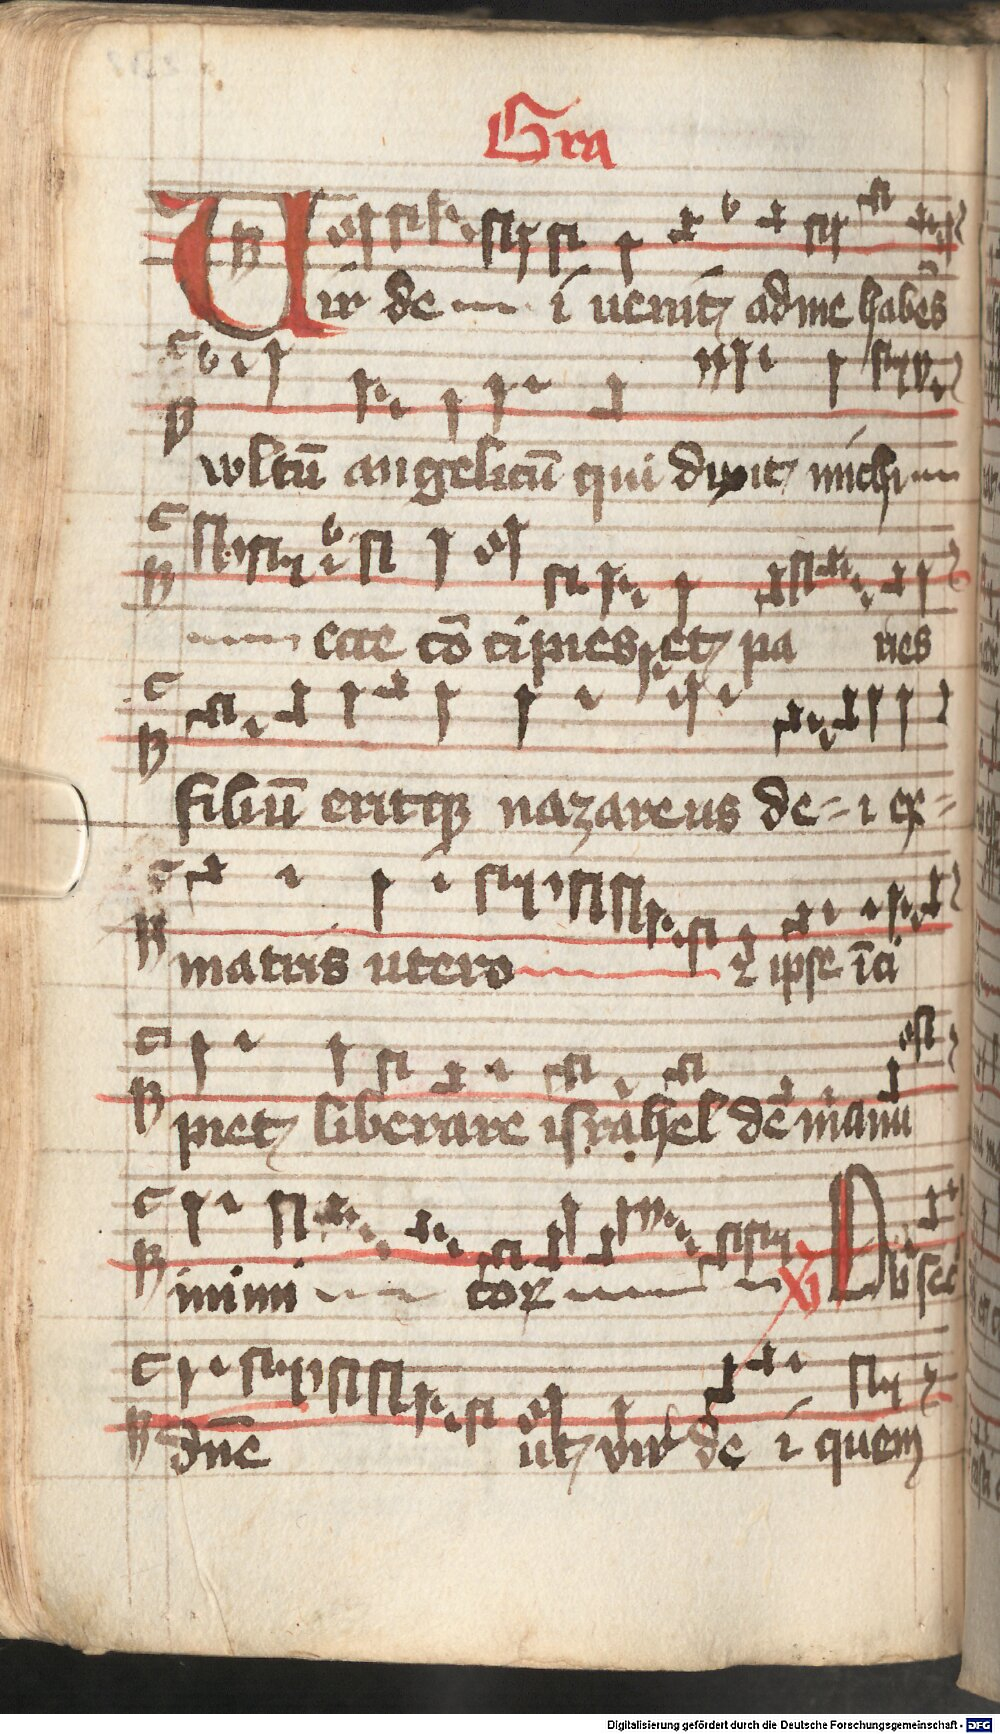 Gra
Vir de i uenit ad me habēs
wltū angelicū qui dixit michi
ecce cōcipies et pa ries
filiū eritqꝫ nazareus de = i ex =
matris utero ⁊ ipse īci
piet liberare israhel de manu
inimi coꝝ xi
dn̄e ut vir de i quem
Digitalisierung gefördert durch die Deutsche Forschungsgemeinschaft - DFG